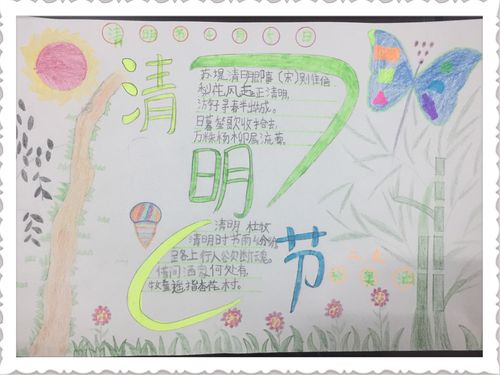 清明节
清明节
苏堤清明即事(宋)
花风起正清明,
寻春半出城。
日暮笙歌收拾去,
万株杨柳属流莺。
清明 杜牧
清明时节雨纷纷
路上行人欲断魂。
借问酒家何处有
牧童遥指杏花村。